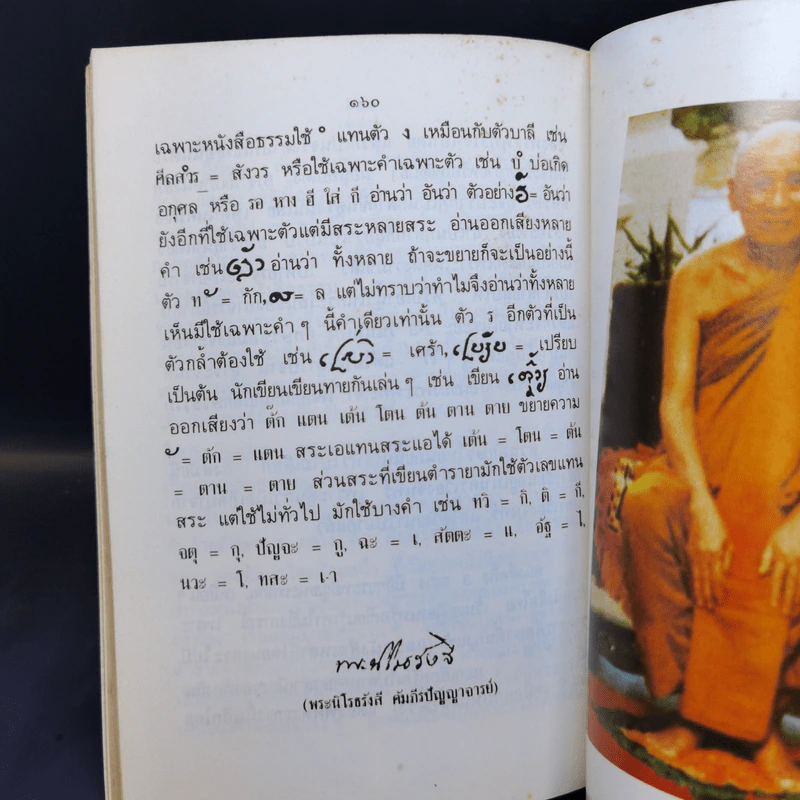 ๑๖๐
เฉพาะหนังสือธรรมใช้ ํ แทนตัว ง เหมือนกับตัวบาลี เช่น
= สังวร หรือใช้เฉพาะคำเฉพาะตัว เช่น บํ บ่อเกิด
อกุศล หรือ รอ หาง ฮี ใส่ กี อ่านว่า อันว่า ตัวอย่าง = อันว่า
ยังอีกที่ใช้เฉพาะตัวแต่มีสระหลายสระ อ่านออกเสียงหลาย
คำ เช่น อ่านว่า ทั้งหลาย ถ้าจะขยายก็จะเป็นอย่างนี้
ตัว ท ั = กัก, = ล แต่ไม่ทราบว่าทำไมจึงอ่านว่าทั้งหลาย
เห็นมีใช้เฉพาะคำ ๆ นี้คำเดียวเท่านั้น ตัว ร อีกตัวที่เป็น
ตัวกล้ำต้องใช้ เช่น = เศร้า, = เปรียบ
เป็นต้น นักเขียนเขียนทายกันเล่น ๆ เช่น เขียน อ่าน
ออกเสียงว่า ตั๊ก แตน เต้น โตน ต้น ตาน ตาย ขยายความ
ั = ตัก = แตน สระเอแทนสระแอได้ เต้น = โตน = ต้น
= ตาน = ตาย ส่วนสระที่เขียนตำรายามักใช้ตัวเลขแทน
สระ แต่ใช้ไม่ทั่วไป มักใช้บางคำ เช่น ทวิ = กิ, ติ = กี,
จตุ = กุ, ปัญจะ = กู, ฉะ = เ, สัตตะ = แ, อัฐ = ไ,
นวะ = โ, ทสะ = เ-า
(พระนิโรธรังสี คัมภีรปัญญาจารย์)